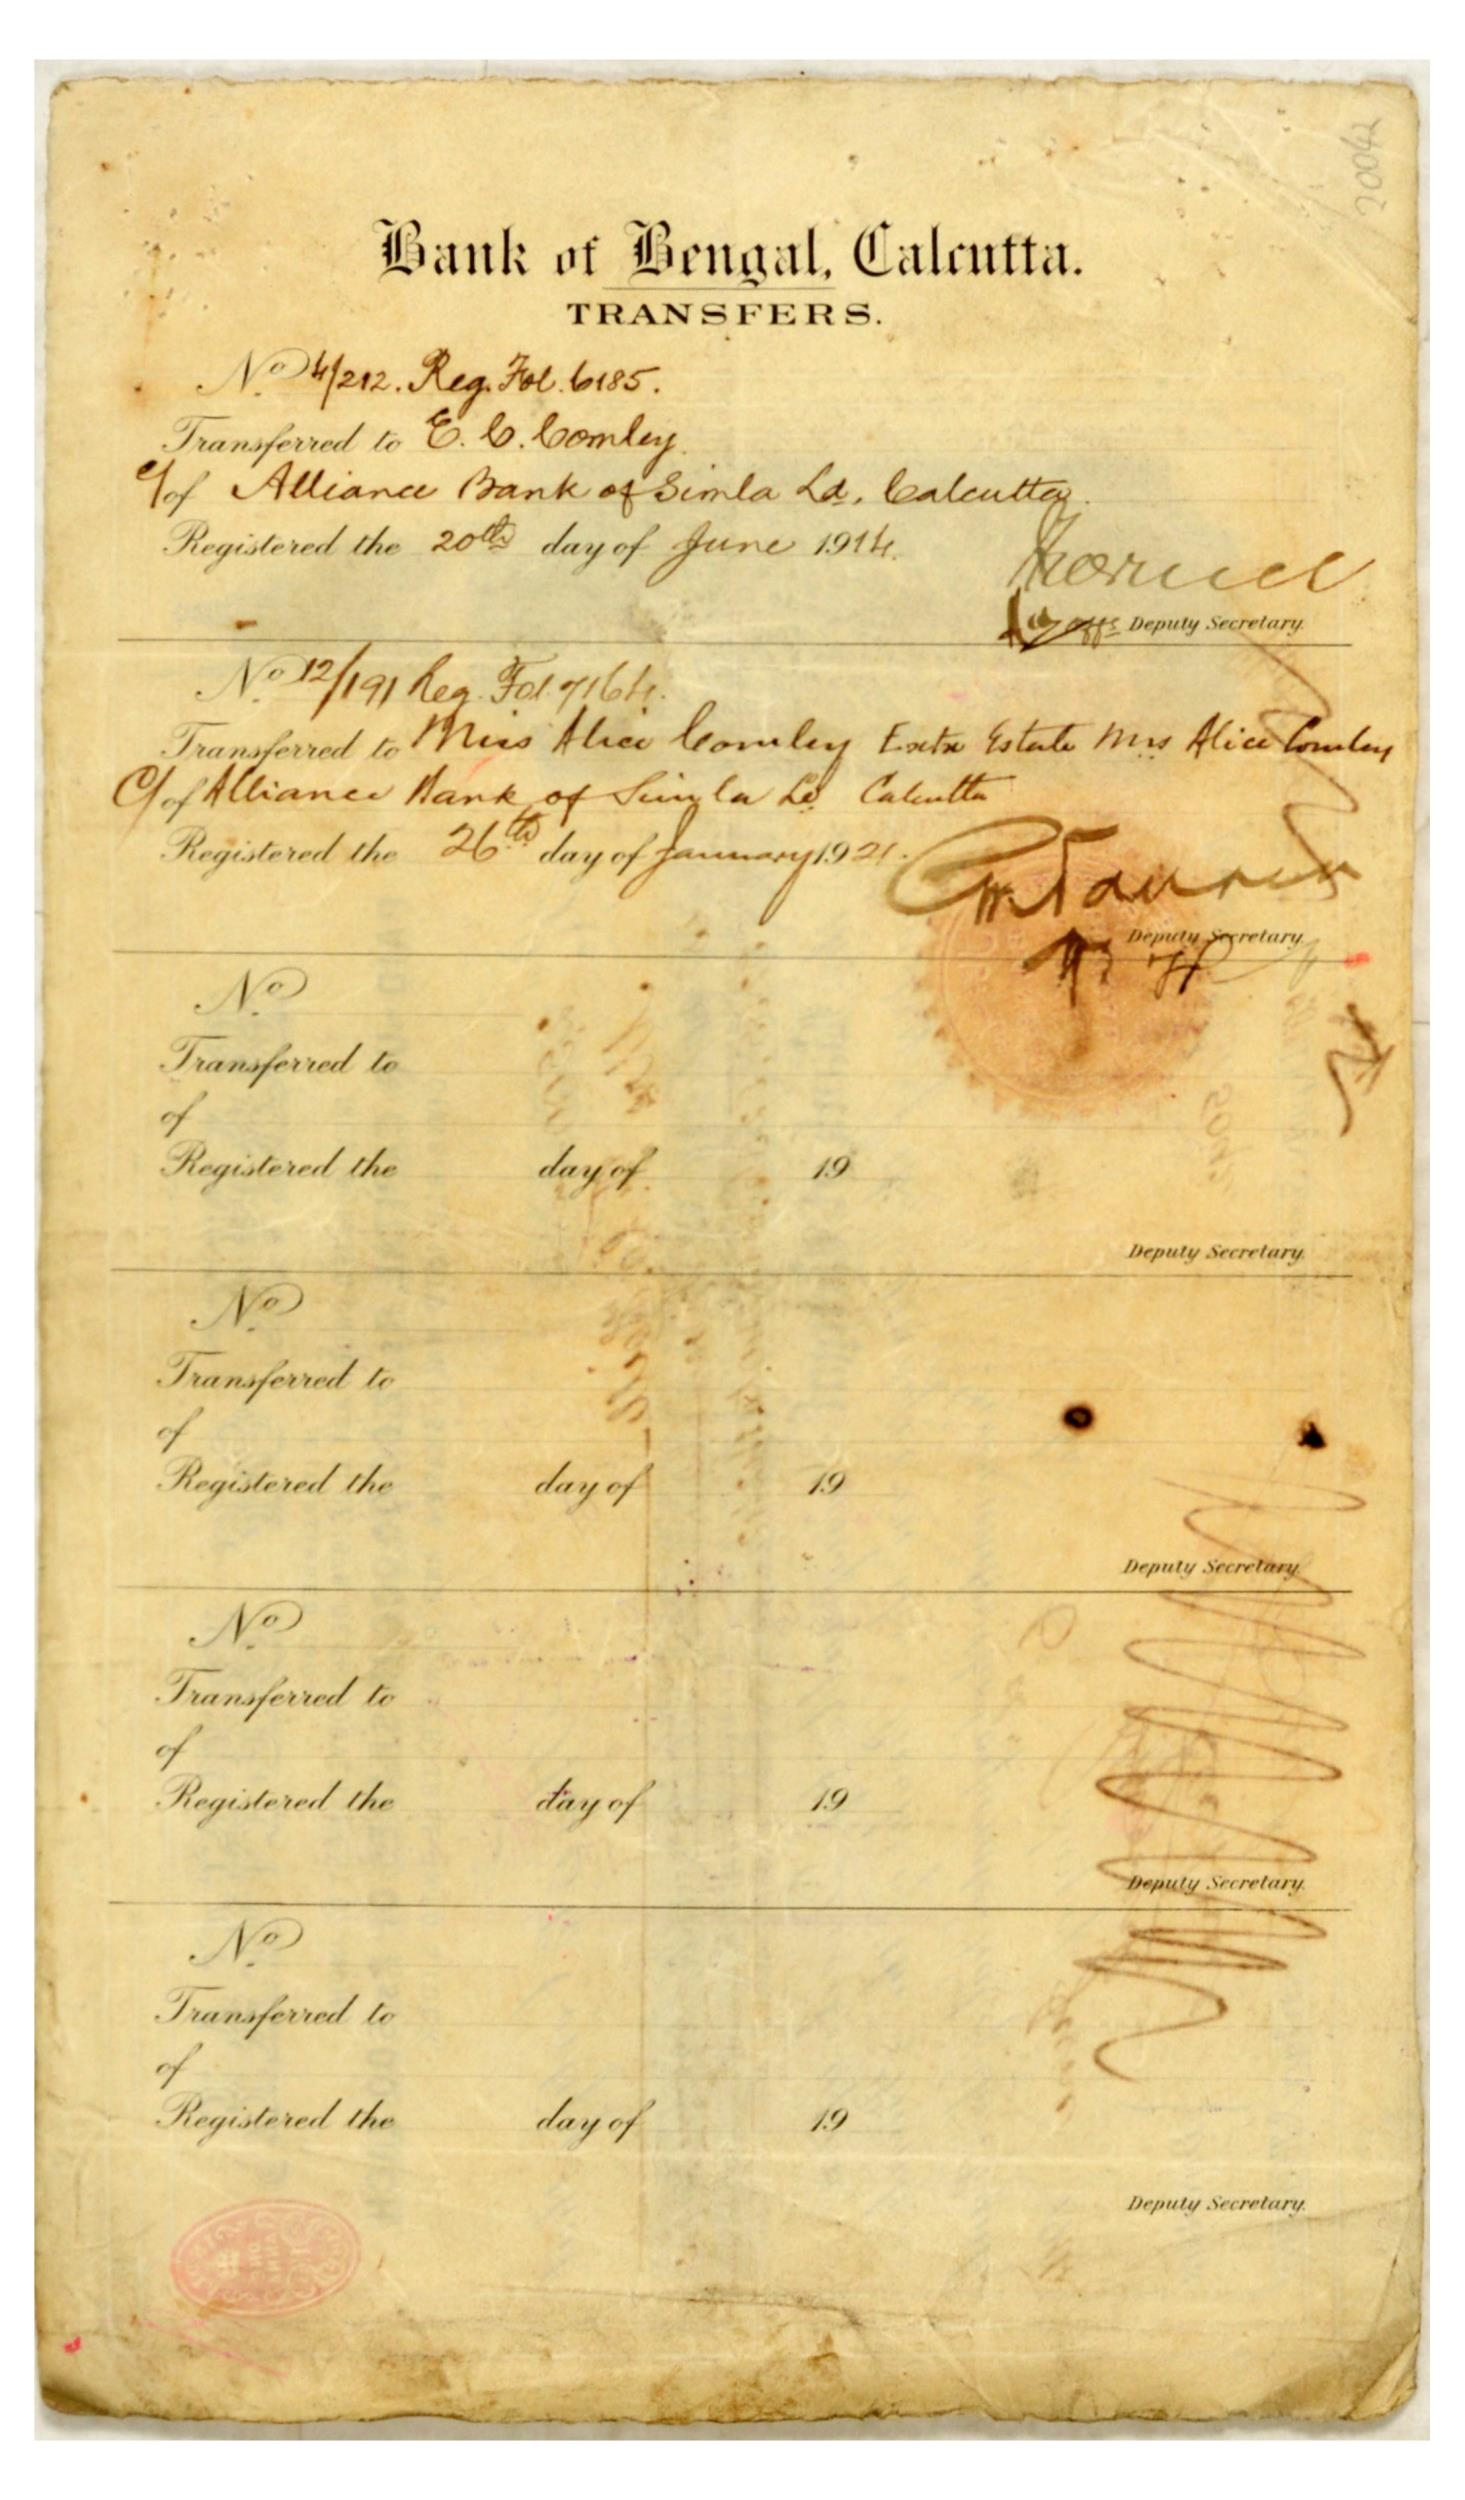 20042
Bank of Bengal, Calcutta.
TRANSFERS.
No. 4/212. Reg. Fol. 6185.
Transferred to E. C. Comley.
C/of Alliance Bank of Simla Ld, Calcutta.
Registered the 20th day of June 1914.
Deputy Secretary.
No. 12/191 Reg. Fol. 7164.
Transferred to Miss Alice Comley Extx Estate Mrs Alice Comley
C/of Alliance Bank of Simla Ld Calcutta
Registered the 26th day of January 1921.
Deputy Secretary.
No.
Transferred to
of
Registered the day of 19
Deputy Secretary.
No.
Transferred to
of
Registered the day of 19
Deputy Secretary.
No.
Transferred to
of
Registered the day of 19
Deputy Secretary.
No.
Transferred to
of
Registered the day of 19
Deputy Secretary.